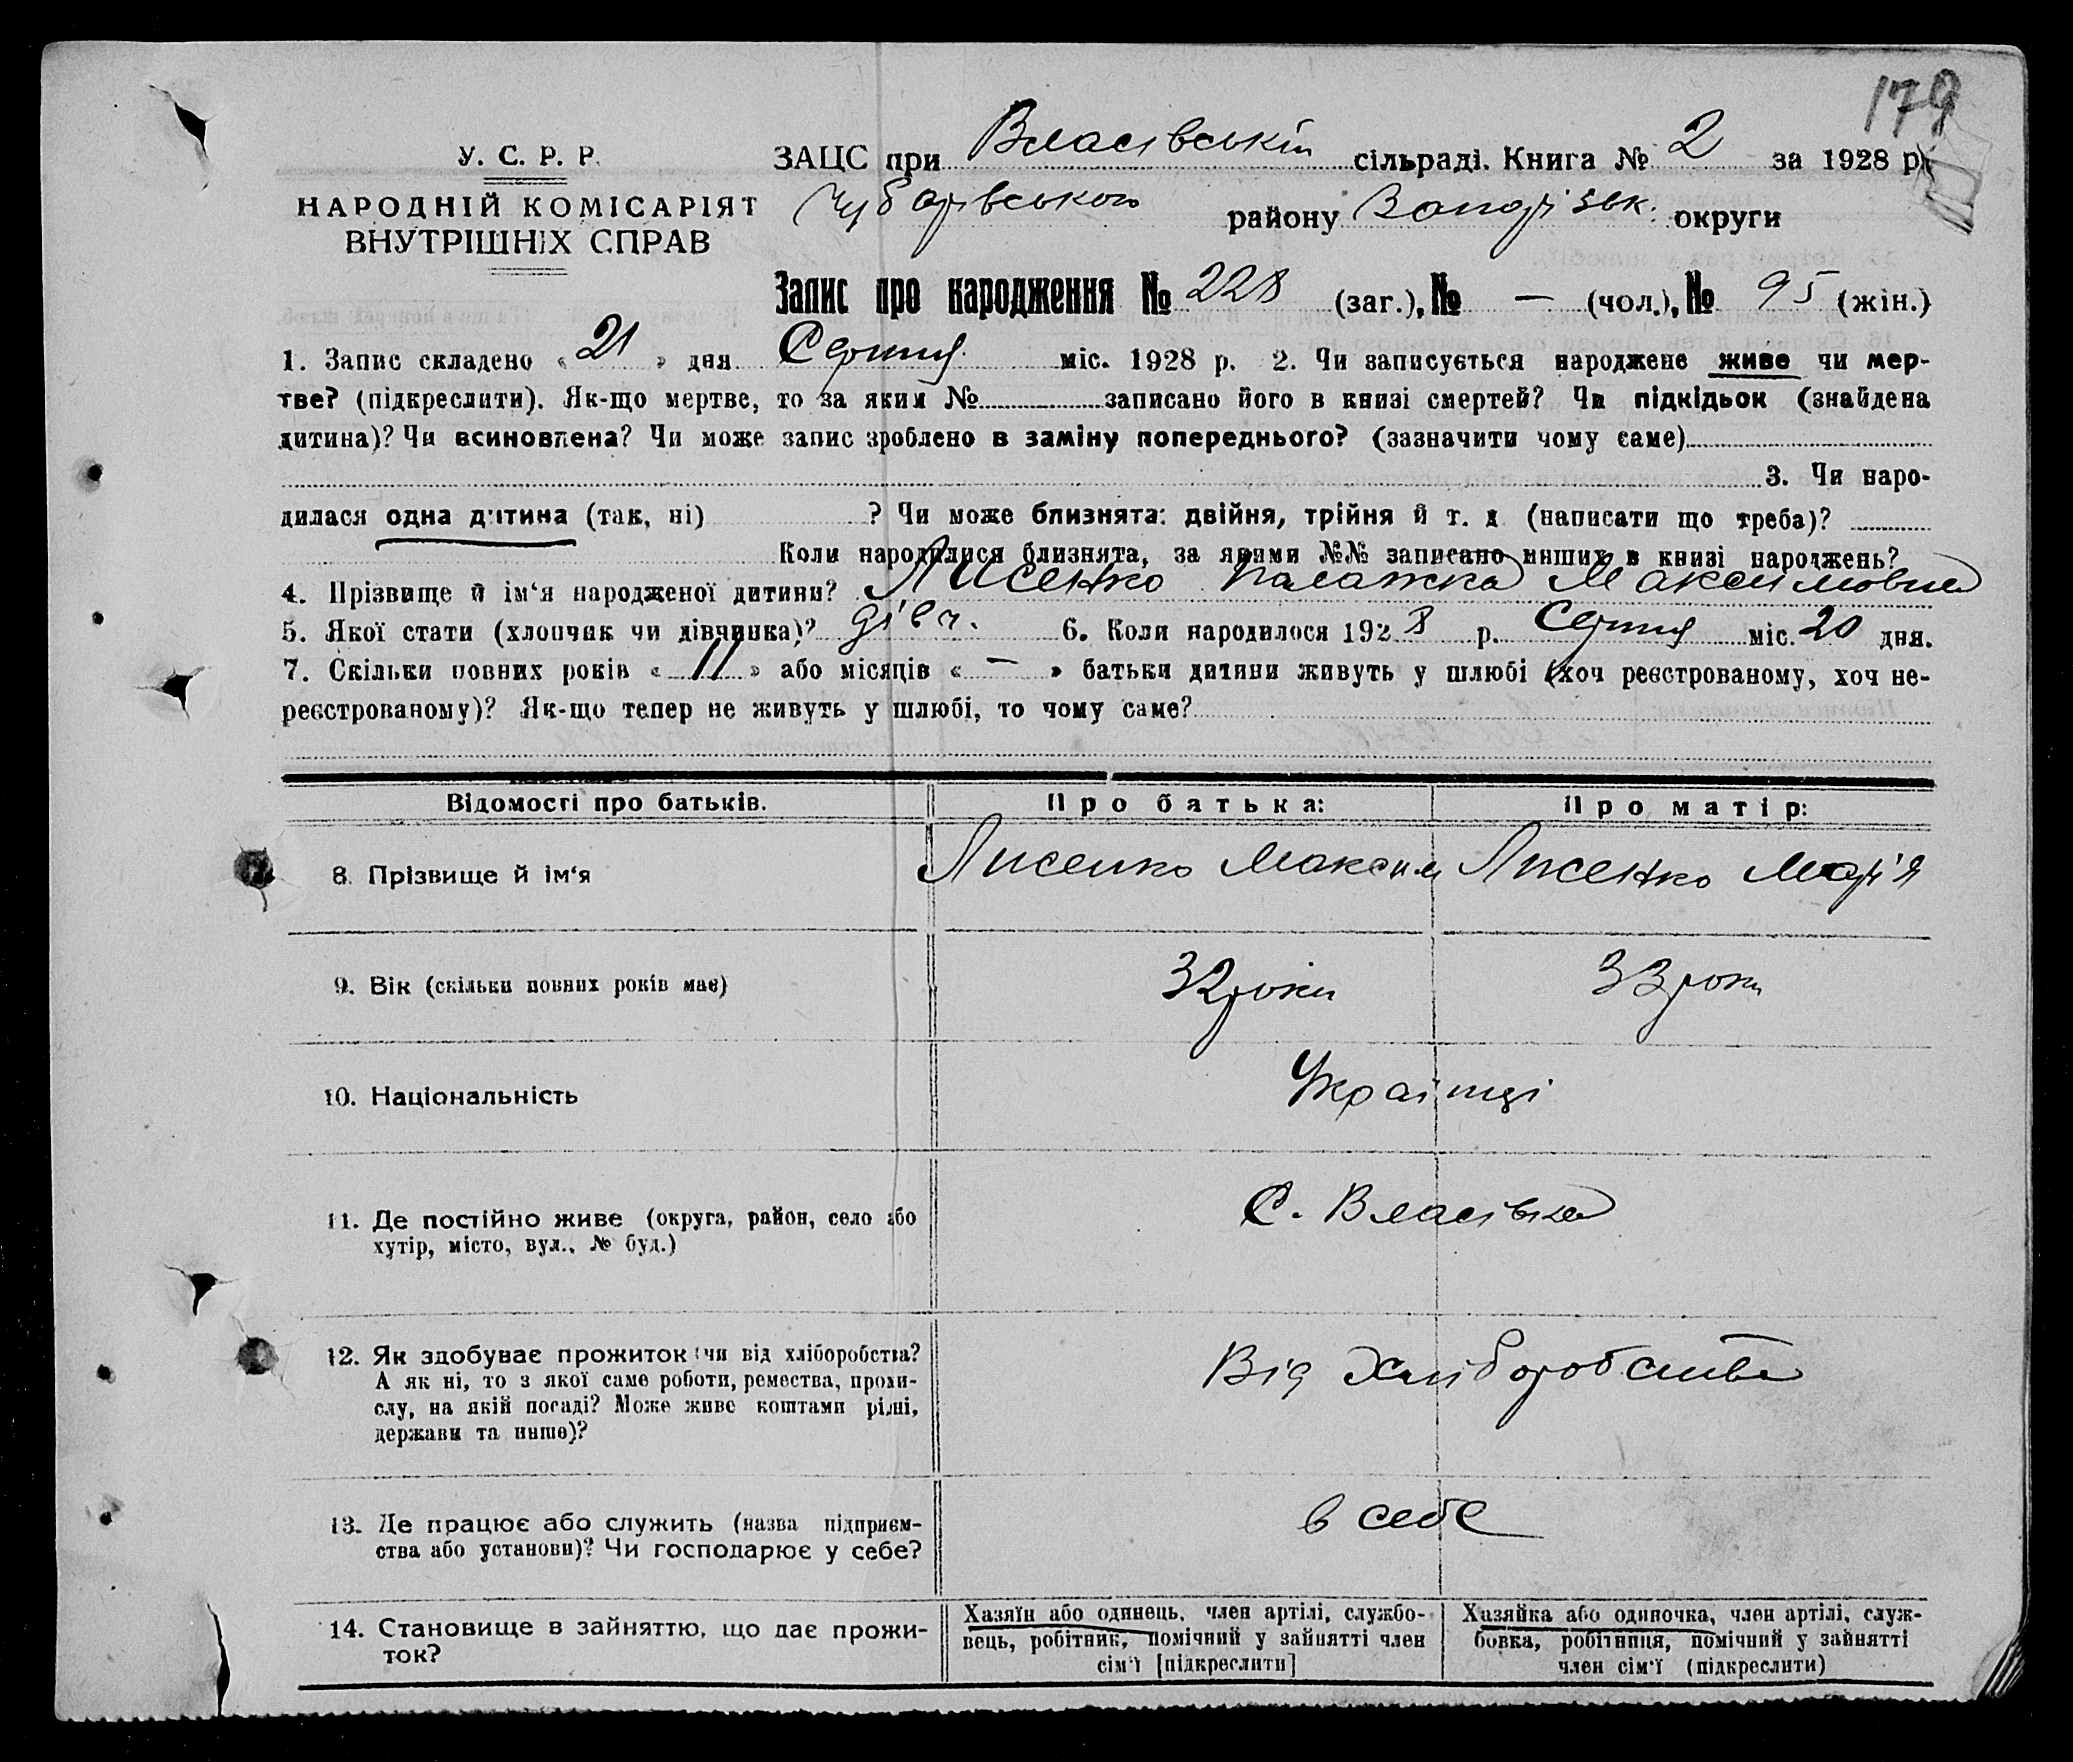 179
У. С. Р. Р.
НАРОДНІЙ КОМІСАРІЯТ
ВНУТРІШНІХ СПРАВ
ЗАЦС при Власівській сільраді. Книга № 2 за 1928 р.
Чубарівського району Запорізьк. округи
Запис про народження № 228 (заг.), № — (чол.), № 95 (жін.)
1. Запис складено « 21 » дня Серпня міс. 1928 р. 2. Чи записується народжене живе чи мер-
тве? (підкреслити). Як-що мертве, то за яким № записано його в книзі смертей? Чи підкідьок (знайдена
дитина)? Чи всиновлена? Чи може запис зроблено в заміну попереднього? (зазначити чому саме)
3. Чи наро-
дилася одна дитина (так, ні) ? Чи може близнята: двійня, трійня й т. д. (написати що треба)?
Коли народилися близнята, за якими №№ записано инших в книзі народжень?
4. Прізвище й ім‘я народженої дитини? Лисенко Палажка Максимовна
5. Якої стати (хлопчик чи дівчинка)? дівч. 6. Коли народилося 1928 р. Серпня міс. 20 дня.
7. Скільки повних років « 11 » або місяців « — » батьки дитини живуть у шлюбі (хоч реєстрованому, хоч не-
реєстрованому)? Як-що тепер не живуть у шлюбі, то чому саме?
Відомості про батьків. Про батька: Про матір:
8. Прізвище й ім‘я Лисенко Максим Лисенко Марія
9. Вік (скільки повних років має) 32 роки 33 роки
10. Національність Українці
11. Де постійно живе (округа, район, село або
хутір, місто, вул., № буд.)
С. Власівка
12. Як здобуває прожиток (чи від хліборобства?
А як ні, то з якої саме роботи, ремества, проми-
слу, на якій посаді? Може живе коштами рідні,
держави та инше)?
Від Хліборобства
13. Де працює або служить (назва підприєм-
ства або установи)? Чи господарює у себе?
в себе
14. Становище в зайняттю, що дає прожи-
ток?
Хазяїн або одинець, член артілі, службо-
вець, робітник, помічний у зайнятті член
сім‘ї [підкреслити]
Хазяйка або одиночка, член артілі, служ-
бовка, робітниця, помічний у зайнятті
член сім‘ї (підкреслити)